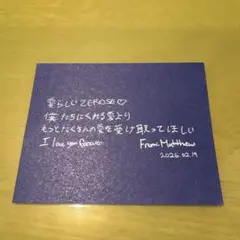 愛らしいZEROSE♡
僕たちにくれる愛より
もっとたくさんの愛を受け取ってほしい
I love you forever.
From. Matthew
2025.02.19